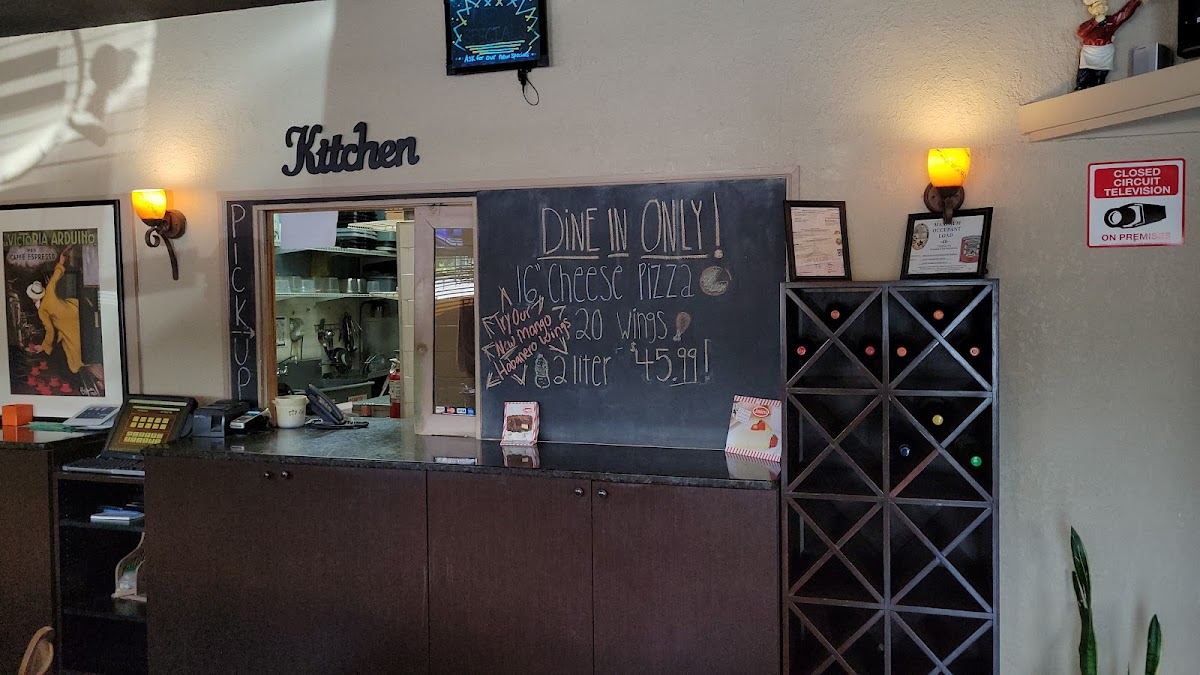 Ask for our new specials
Kitchen
VICTORIA ARDUINO
CAFFÉ ESPRESSO
PICK-UP
DINE IN ONLY!
16" Cheese Pizza
20 wings
2 liter $45.99!
Try Our
New Mango
Habanero Wings
MAXIMUM
OCCUPANT
LOAD
CLOSED
CIRCUIT
TELEVISION
ON PREMISES